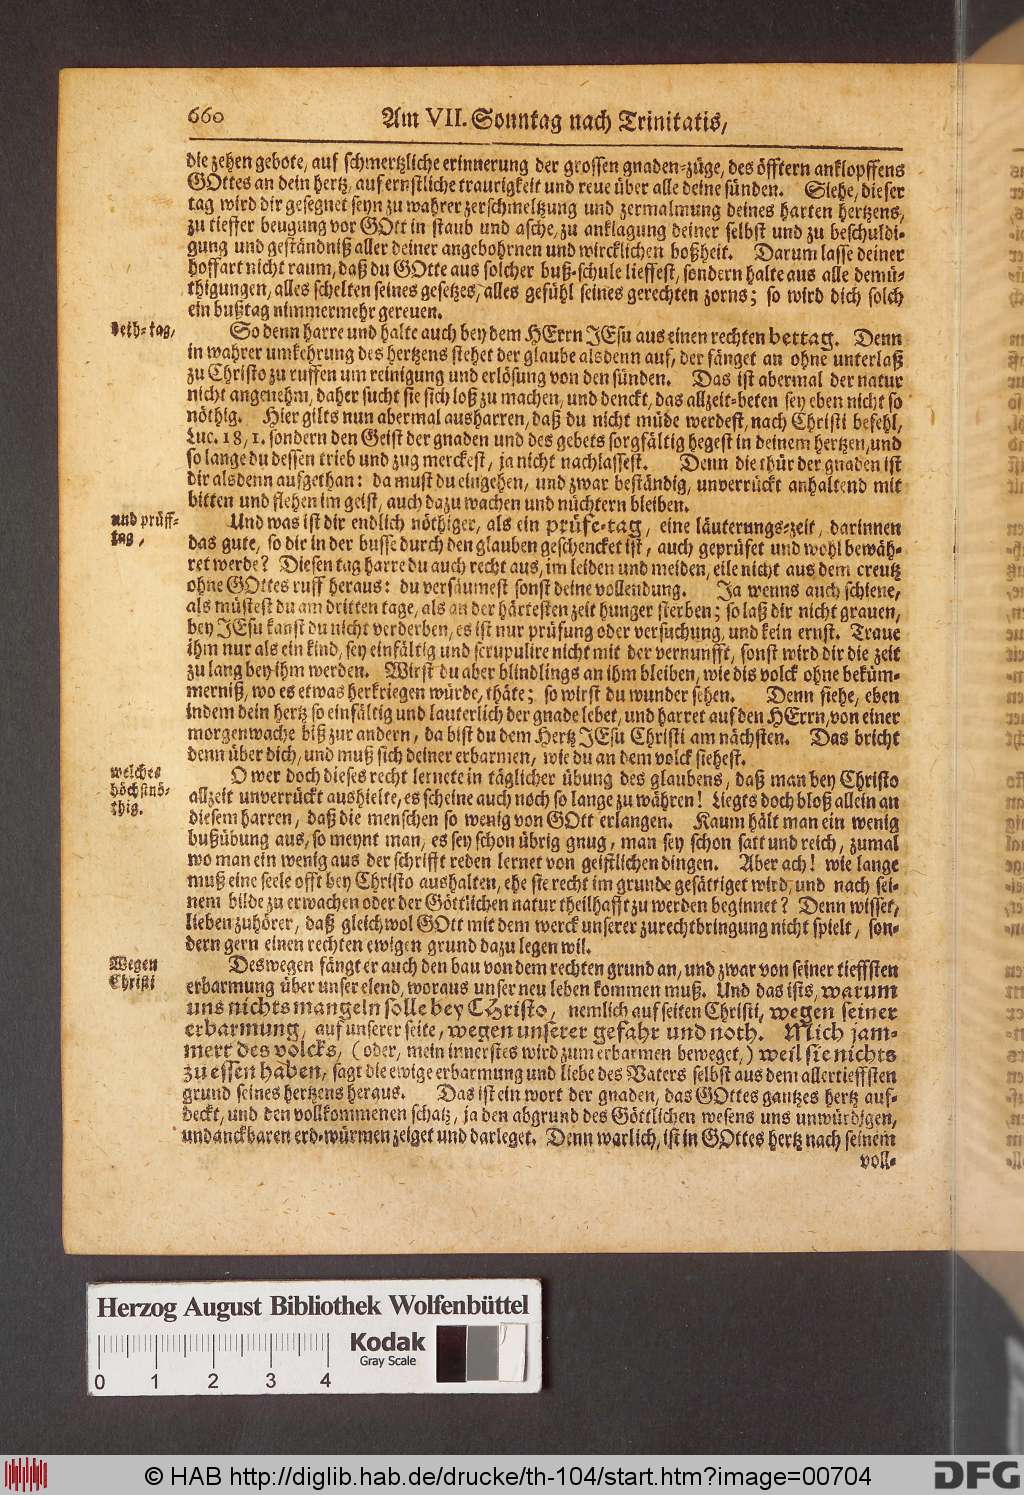 660
Am VII. Sonntag nach Trinitatis,
die zehen gebote, auf schmertzliche erinnerung der grossen gnaden-züge, des öfftern anklopffens
GOttes an dein hertz, auf ernstliche traurigkeit und reue über alle deine sünden. Siehe, dieser
tag wird dir gesegnet seyn zu wahrer zerschmeltzung und zermalmung deines harten hertzens,
zu tieffer beugung vor GOtt in staub und asche, zu anklagung deiner selbst und zu beschuldi-
gung und geständniß aller deiner angebohrnen und wircklichen boßheit. Darum lasse deiner
hoffart nicht raum, daß du GOtte aus solcher buß-schule lieffest, sondern halte aus alle demü-
thigungen, alles schelten seines gesetzes, alles gefühl seines gerechten zorns; so wird dich solch
ein bußtag nimmermehr gereuen.
Beth-tag,
So denn harre und halte auch bey dem HErrn JEsu aus einen rechten bettag. Denn
in wahrer umkehrung des hertzens stehet der glaube alsdenn auf, der fänget an ohne unterlaß
zu Christo zu ruffen um reinigung und erlösung von den sünden. Das ist abermal der natur
nicht angenehm, daher sucht sie sich loß zu machen, und denckt, das allzeit-beten sey eben nicht so
nöthig. Hier gilts nun abermal ausharren, daß du nicht müde werdest, nach Christi befehl,
Luc. 18, 1. sondern den Geist der gnaden und des gebets sorgfältig hegest in deinem hertzen, und
so lange du dessen trieb und zug merckest, ja nicht nachlassest. Denn die thür der gnaden ist
dir alsdenn aufgethan: da must du eingehen, und zwar beständig, unverrückt anhaltend mit
bitten und flehen im geist, auch dazu wachen und nüchtern bleiben.
und prüff-
tag,
Und was ist dir endlich nöthiger, als ein prüfe-tag, eine läuterungs-zeit, darinnen
das gute, so dir in der busse durch den glauben geschencket ist, auch geprüfet und wohl bewäh-
ret werde? Diesen tag harre du auch recht aus, im leiden und meiden, eile nicht aus dem creutz
ohne GOttes ruff heraus: du versäumest sonst deine vollendung. Ja wenns auch schiene,
als müstest du am dritten tage, als an der härtesten zeit hunger sterben; so laß dir nicht grauen,
bey JEsu kanst du nicht verderben, es ist nur prüfung oder versuchung, und kein ernst. Traue
ihm nur als ein kind, sey einfältig und scrupulire nicht mit der vernunfft, sonst wird dir die zeit
zu lang bey ihm werden. Wirst du aber blindlings an ihm bleiben, wie dis volck ohne beküm-
merniß, wo es etwas herkriegen würde, thäte; so wirst du wunder sehen. Denn siehe, eben
indem dein hertz so einfältig und lauterlich der gnade lebet, und harret auf den HErrn, von einer
morgenwache biß zur andern, da bist du dem Hertz JEsu Christi am nächsten. Das bricht
denn über dich, und muß sich deiner erbarmen, wie du an dem volck siehest.
welches
höchstnö-
thig.
O wer doch dieses recht lernete in täglicher übung des glaubens, daß man bey Christo
allzeit unverrückt aushielte, es scheine auch noch so lange zu währen! Liegts doch bloß allein an
diesem harren, daß die menschen so wenig von GOtt erlangen. Kaum hält man ein wenig
bußübung aus, so meynt man, es sey schon übrig gnug, man sey schon satt und reich, zumal
wo man ein wenig aus der schrifft reden lernet von geistlichen dingen. Aber ach! wie lange
muß eine seele offt bey Christo aushalten, ehe sie recht im grunde gesättiget wird, und nach sei-
nem bilde zu erwachen oder der Göttlichen natur theilhafft zu werden beginnet? Denn wisset,
lieben zuhörer, daß gleichwol GOtt mit dem werck unserer zurechtbringung nicht spielt, son-
dern gern einen rechten ewigen grund dazu legen wil.
Wegen
Christi
Deswegen fängt er auch den bau von dem rechten grund an, und zwar von seiner tieffsten
erbarmung über unser elend, woraus unser neu leben kommen muß. Und das ists, warum
uns nichts mangeln solle bey Christo, nemlich auf seiten Christi, wegen seiner
erbarmung, auf unserer seite, wegen unserer gefahr und noth. Mich jam-
mert des volcks, (oder, mein innerstes wird zum erbarmen beweget,) weil sie nichts
zu essen haben, sagt die ewige erbarmung und liebe des Vaters selbst aus dem allertieffsten
grund seines hertzens heraus. Das ist ein wort der gnaden, das GOttes gantzes hertz auf-
deckt, und den vollkommenen schatz, ja den abgrund des Göttlichen wesens uns unwürdigen,
undanckbaren erd-würmen zeiget und darleget. Denn warlich, ist in GOttes hertz nach seinem
voll-
Herzog August Bibliothek Wolfenbüttel
Kodak
Gray Scale
0 1 2 3 4
© HAB http://diglib.hab.de/drucke/th-104/start.htm?image=00704
DFG